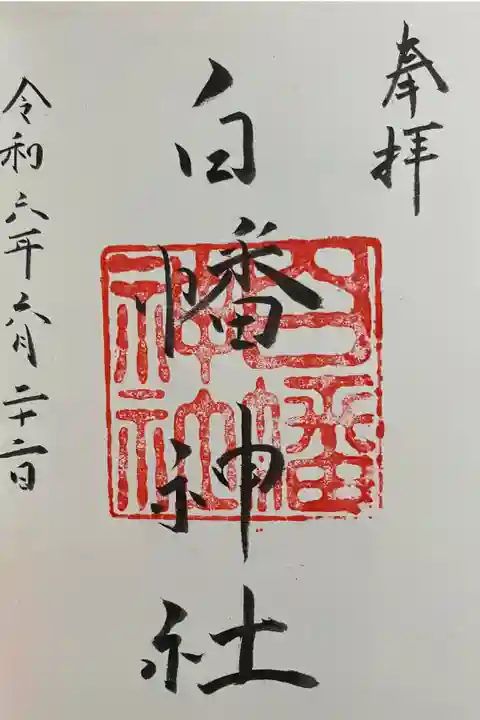 奉拝
白幡神社
白幡神社
令和六年六月二十二日